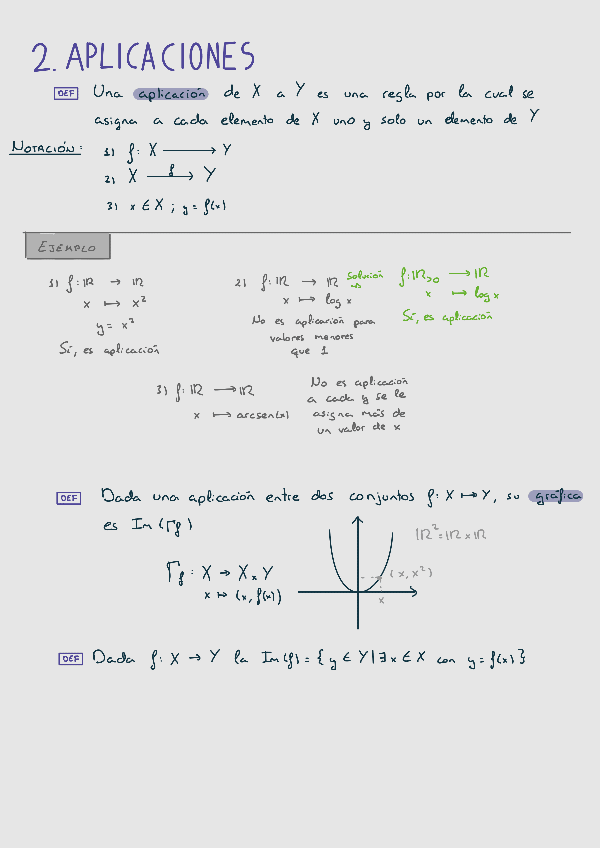 2. APLICACIONES
DEF Una aplicación de X a Y es una regla por la cual se
asigna a cada elemento de X uno y solo un elemento de Y
NOTACIÓN: 1) f: X ⟶ Y
2) X ⟶ Y
f
3) x ∈ X ; y = f(x)
EJEMPLO
1) f: ℝ → ℝ
x ↦ x²
y = x²
Sí, es aplicación
2) f: ℝ → ℝ
x ↦ log x
No es aplicación para
valores menores
que 1
Solución →
f: ℝ>0 → ℝ
x ↦ log x
Sí, es aplicación
3) f: ℝ → ℝ
x ↦ arcsen(x)
No es aplicación
a cada y se le
asigna más de
un valor de x
DEF Dada una aplicación entre dos conjuntos f: X ↦ Y, su gráfica
es Im(Γf)
Γf : X → X × Y
x ↦ (x, f(x))
ℝ² = ℝ × ℝ
(x, x²)
x
DEF Dada f: X → Y la Im(f) = { y ∈ Y | ∃ x ∈ X con y = f(x) }